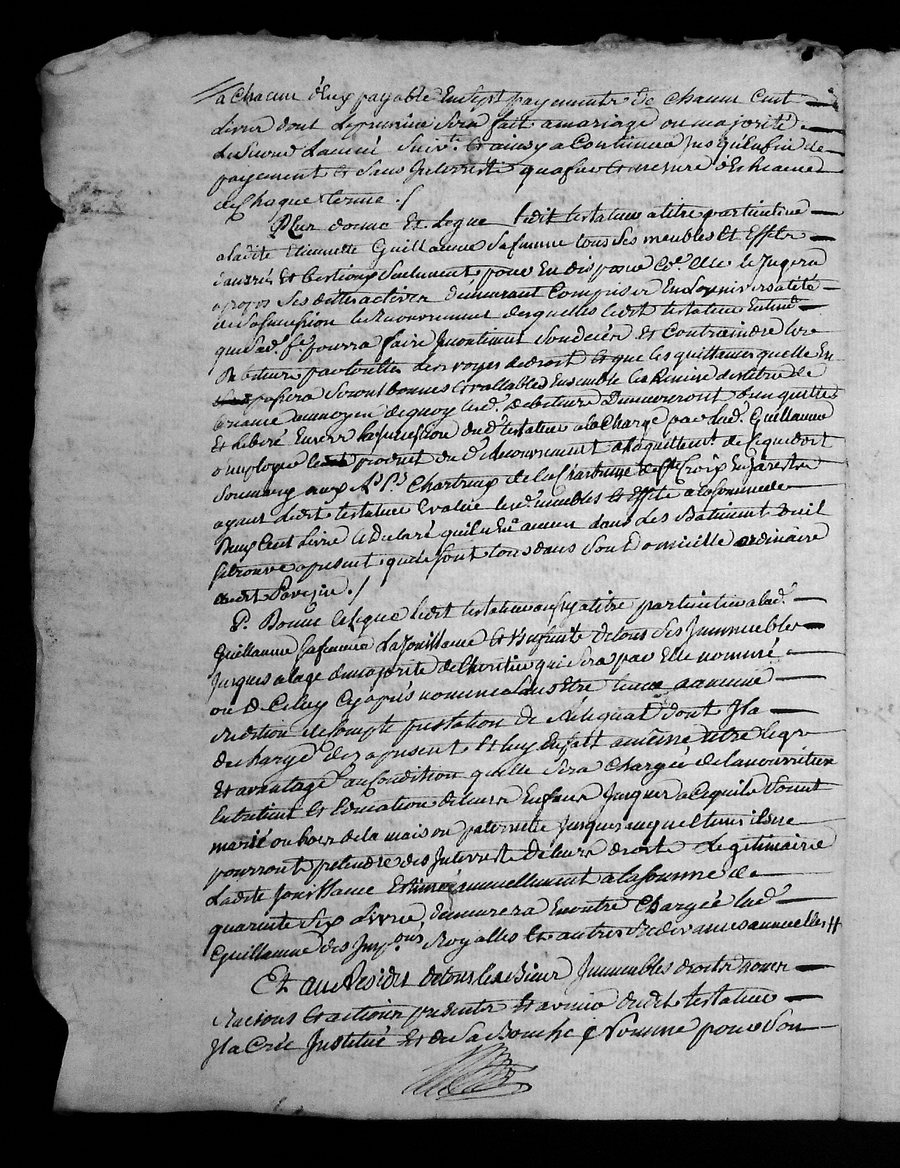 a chacun d'eux payable en sept payements de chacun cent
livres dont le premier sera fait a mariage ou majorité
le second l'année suiv.te et ainsy a continuer jusqu'a fin de
payement et sans interrests qu'a fur et mesure d'echeance
de chaque terme ./
Plus donne et legue ledit testateur a titre particulier
a ladite Etiennette Guillaume sa femme tous ses meubles et effets
et bestiaux seulement pour en disposer co.e elle le jugera
a propos ses dettes actives demeurant comprises en l'universalité
de sa succession le recouvrement desquelles ledit testateur entend
que sad. f.e pourra faire incontinent son decés et contraindre les
debiteurs par touttes les voyes de droit et que les quittances quelle en
passera seront bonnes et vallables ensemble les remises des titres de
creance au moyen de quoy lesd. debiteurs demeureront bien quittes
et liberé envers la succession dud. testateur a la charge par lad. Guillaume
d'employer le produit du d. recouvrement a l'acquittem.t de ce qu'il doit
aux R. P. Chartreux de la Chartreuse de S.te Croix en Jarestz
ayant ledit testateur evalué lesd. meubles et effets a la somme de
deux cent livres et declaré qu'il n'en a aucun dans des batiments ou il
se trouve a present qu'ils sont tous dans son domicille ordinaire
audit Pavezin ./
P. Donne et legue ledit testateur aussy a titre particulier a lad.
Guillaume sa femme la jouissance et usufruit de tous ses immeubles
jusques a l'age de majorité de l'heritier qui sera par elle nommé
ou de celuy cy apres nommé sans etre tenue a aucune
reddition de compte prestation de reliquat dont il la
decharge des a present et luy en fait au meme titre legs
et avantage au condition quelle sera chargée de la nourriture
entretient et education de leurs enfans jusques a ce quils soient
marié ou hors de la maison paternelle jusques auquel tems ils ne
pourront pretendre des interrests de leurs droits legitimaire
ladite jouissance estimée annuellement a la somme de
quarante six livres, demeurera en outre chargée lad.
Guillaume des imp.ons royalles et autres redevances annuelles //
Et au Residu de tous les biens immeubles droits noms
raisons et actions presents et avenir dudit testateur
il a créé institué et de sa bouche nommé pour son